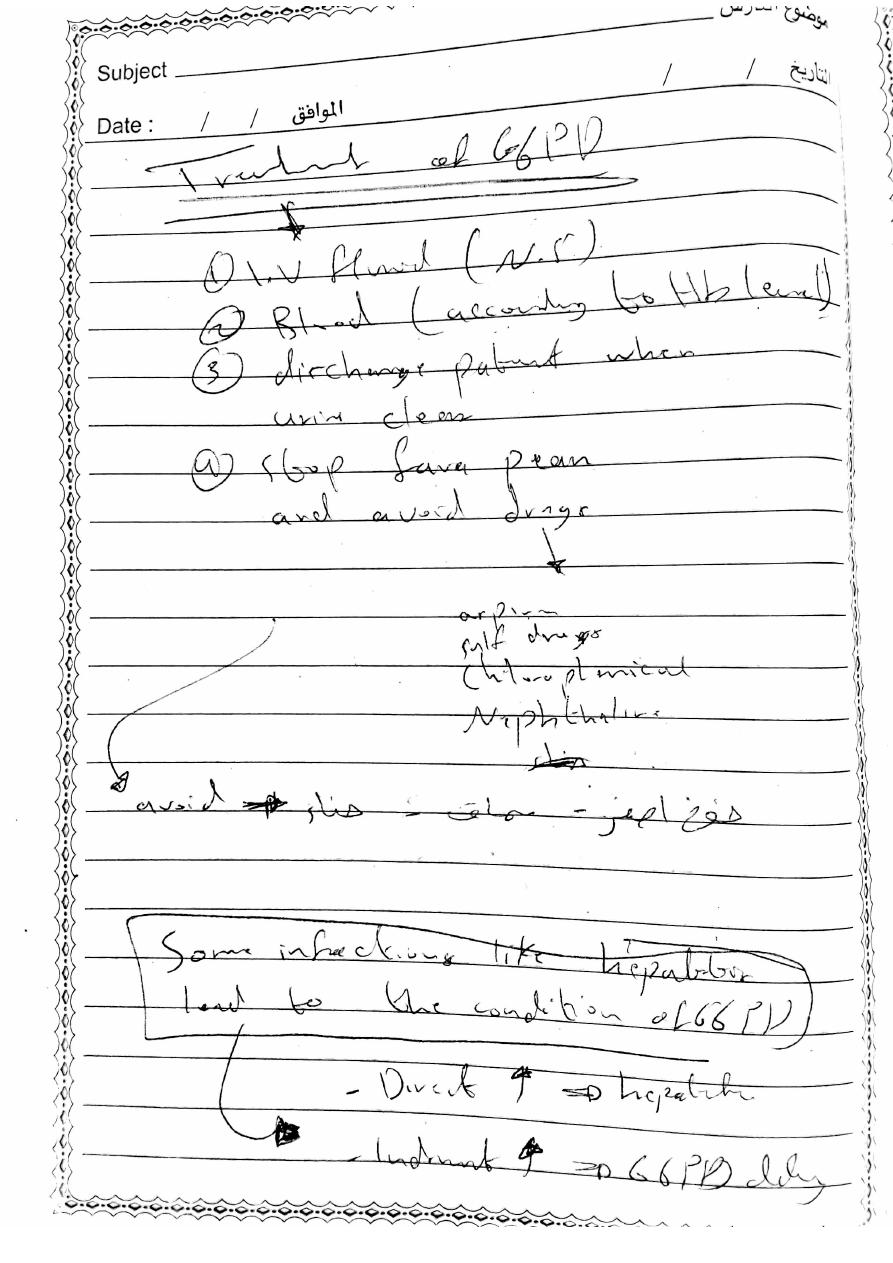 موضوع الدرس
Subject
التاريخ / /
Date : / / الموافق
Treatment of G6PD
① I.V fluid (N.S)
② Blood (according to Hb level)
③ discharge patient when
urine clear
④ stop fava pean
and avoid drugs
aspirin
sulf drugs
Chloroptenical
Nephthaline
avoid ⇒ حناء -
Some infections like hepatitis
lead to the condition of G6PD
- Direct ↑ ⇒ hepatitis
- Indirect ↑ ⇒ G6PD